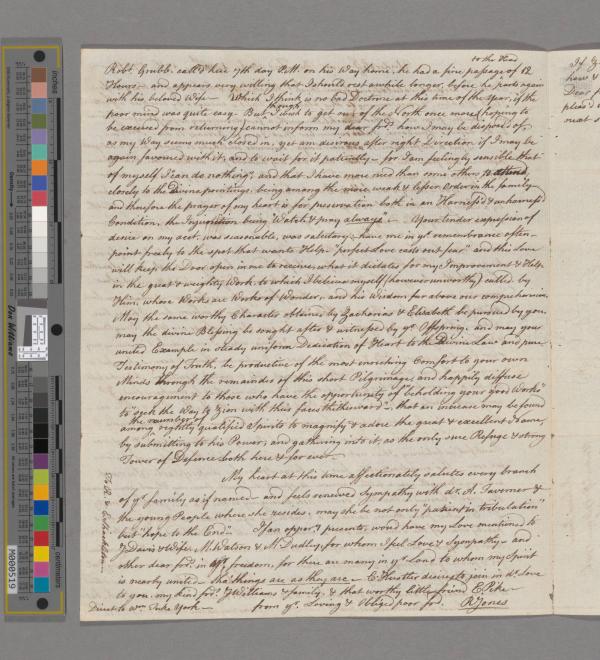 to the Head
Robt. Grubb. call'd here 7th day Pt.M. on his way home, he had a fine passage of 12
Hours - and appears very willing that I should rest awhile longer, before he parts again
with his beloved Wife - Which I think is no bad Doctrine at this time of the Year, if the
poor mind was quite easy. But I want to get out of the North once more, tho' hoping to
be excused from returning, I cannot inform my dear frds. how I may be disposed of,
as my Way seems much closed in, yet am desirous after right Direction if I may be
again favoured with it, and to wait for it patiently - for I am feelingly sensible that
of myself I can do nothing, and that I have more need than some others to attend
closely to the Divine pointings, being among the more weak & lesser order in the family -
and therefore the prayer of my heart is for preservation both in an Harness'd & unharness'd
Condition, the Injunction being "Watch & pray always" - Your tender expression of
desire on my acct. was seasonable, was salutary - have me in yr. remembrance often -
point freely to the spot that wants Help - "perfect love casts out fear" and this Love
will keep the Door open in me to receive what it dictates for my Improvement & Help
in the great & weighty Work, to which I believe myself (however unworthy) called by
Him, whose Works are Works of Wonder, and his Wisdom far above our comprehension.
May the same worthy Character obtained by Zacharias & Elizabeth be pursued by you,
may the divine Blessing be sought after & witnessed by yr. Offspring, and may your
united Example in steady uniform Dedication of Heart to the Divine Law and pure
Testimony of Truth, be productive of the most enriching Comfort to your own
Minds through the remainder of this short Pilgrimage, and happily diffuse
encouragement to those who have the opportunity of "beholding your good Works"
to "seek the Way to Zion with their faces thitherward", that an increase may be found
the number of
among rightly qualified Spirits to magnify & adore the great & excellent Name,
by submitting to his Power, and gathering into it, as the only sure Refuge & strong
Tower of Defence both here & for ever.
My heart at this time affectionately salutes every branch
of yr. family as if named - and feels renewed Sympathy with dr. A. Taverner &
the young People where she resides, may she be not only "patient in tribulation"
but "hope to the End." If an oppory. presents, would have my Love mentioned to
J Davis & Wife, M. Watson & M Dudley, for whom I feel Love & Sympathy - and
other dear frds. in freedom, for there are many in yr. Land to whom my Spirit
is nearly united - tho' things are as they are - E Hustler desires to join in dr. Love
to you, my kind frds. J Williams & family, & that worthy little friend E Pike -
Direct to Wm. Tuke York - from yr. Loving & Obliged poor frd. R Jones
If y
have &
Dear f
pleas'd
neat s
inches
centimetres
Don Williams
M000519